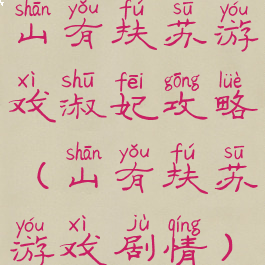 shān yǒu fú sū yóu
山有扶苏游
xì shū fēi gōng lüè
戏淑妃攻略
shān yǒu fú sū
（山有扶苏
yóu xì jù qíng
游戏剧情）